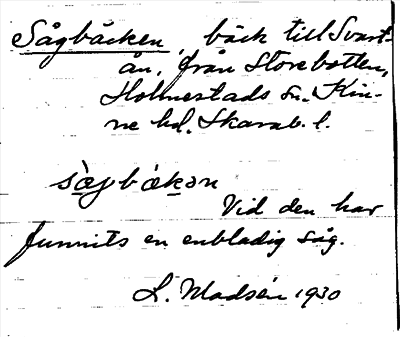 Sågbäcken, bäck till Svart-
ån, från Storebotten,
Holmestads sn. Kin-
ne hd. Skarab. l.
sàgbäkən
Vid den har
funnits en enbladig såg.
L. Madsén 1930